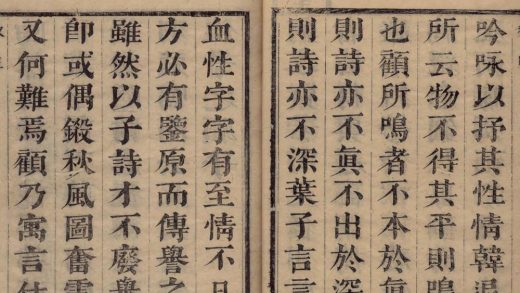 吟咏以抒其性情韓
所云物不得其平則鳴
也顧所鳴者不本於
則詩亦不眞不出於深
則詩亦不深葉子言
血性字字有至情不
方必有鑒原而傳譽之
雖然以子詩才不廢
卽或偶鎩秋風圖奮
又何難焉顧乃寓言